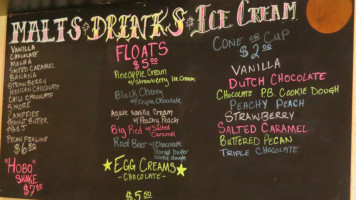 MALTS · DRINKS · ICE CREAM
VANILLA
CHOCOLATE
MOCHA
SALTED CARAMEL
BANANA
STRAWBERRY
MEXICAN CHOCOLATE
CHILI CHOCOLATE
S'MORE
CAMPFIRE
PEANUT BUTTER
PB&J
PECAN PRALINE
$6.50
"HOBO"
SHAKE
$7.50
FLOATS
$5.00
Pineapple Cream
w/Strawberry Ice Cream
Black Cherry
w/Triple Chocolate
Agave Vanilla Cream
w/Peachy Peach
Big Red w/Salted
Caramel
Root Beer w/Chocolate
Peanut Butter
Cookie dough
EGG CREAMS
-CHOCOLATE-
$5.50
CONE OR CUP
$2.00
VANILLA
DUTCH CHOCOLATE
CHOCOLATE P.B. COOKIE DOUGH
PEACHY PEACH
STRAWBERRY
SALTED CARAMEL
BUTTERED PECAN
TRIPLE CHOCOLATE